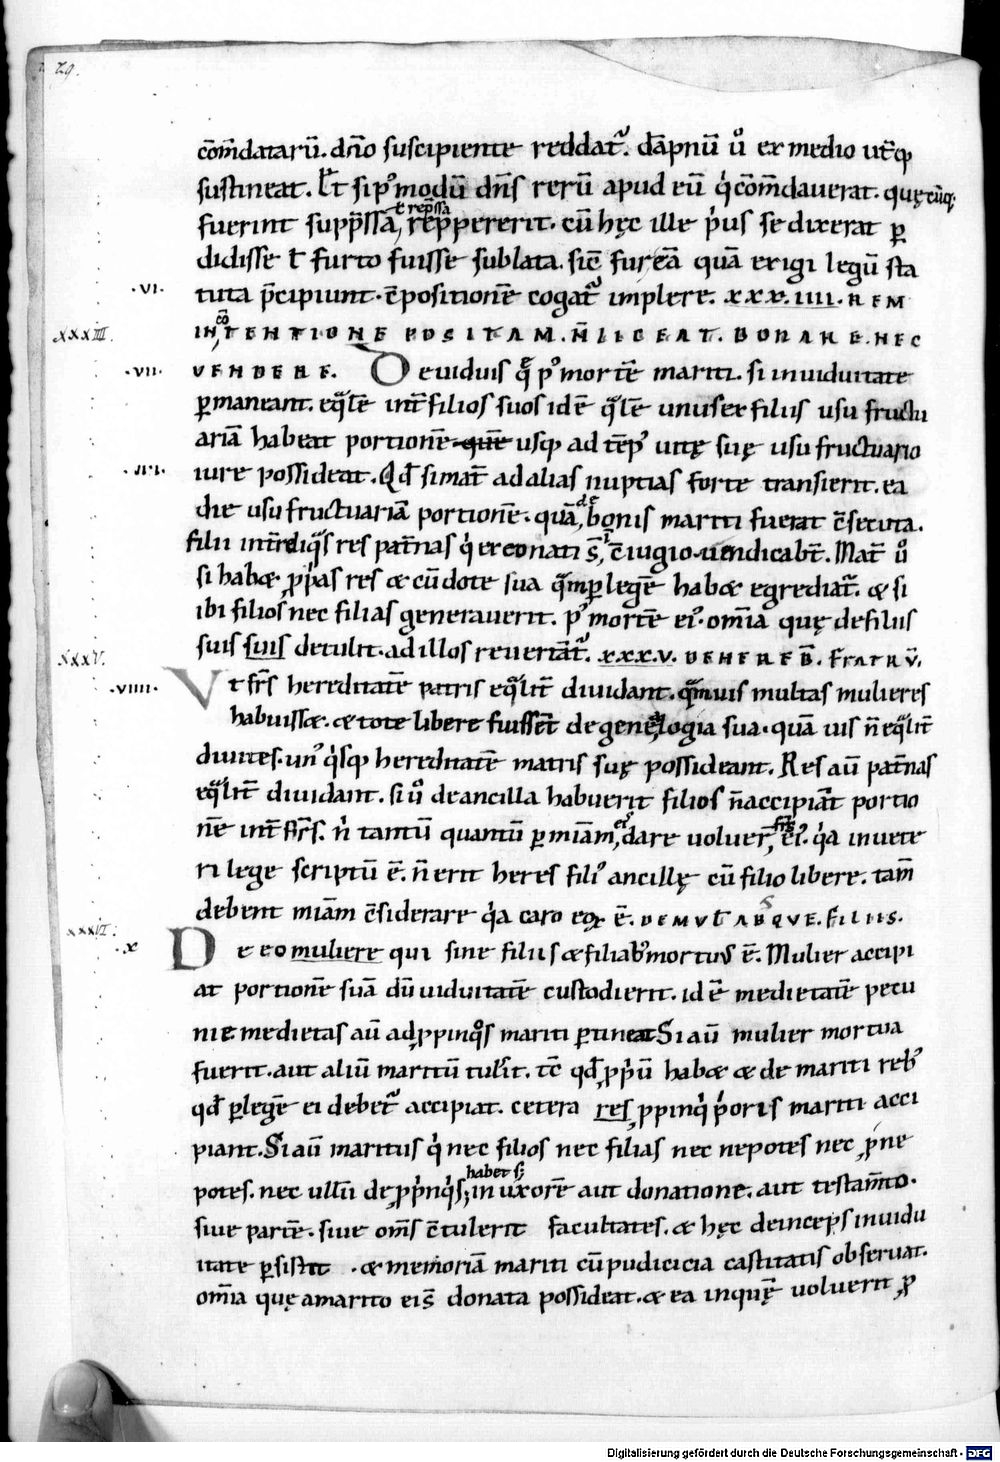 29.
cōm̄datarū. dn̄o suscipiente reddat᷑. dāpnū ů ex medio ut̄qꝫ
sustineat. Et si pꝰ modū dn̄s rerū apud eū q̇ cōm̄dauerat. quęcūqꝫ
ł rep̄ssa
fuerint supp̄ssa, rēppererit. cū hęc ille p̓us se dixerat ꝑ
didisse ł furto fuisse sublata. sic̄ fur eā quā exigi legū sta
.VI. tuta p̄cipiunt. c̄positionē cogat᷑ implere. XXX.IIII. REM
XXXIII. INTENTIONE POSITAM. N̄ LICEAT. DONARE. NEC
.VII. VENDERE. De uiduis q̄ pꝰ mortē mariti. si in uiduitate
ꝑmaneant. eq̄lē int̄ filios suos id ē q̄lē unus ex filiis usu fructu
ariā habeat portionē quē usqꝫ ad tēpꝰ uitę suę usu fructuario
.VIII. iure possideat. Qd̄ si mat̄ ad alias nuptias forte transierit. ea
de
die usu fructuariā portionē. quā, bonis mariti fuerat c̄secuta.
filii inter reliq̄s res pat̄nas q̇ ex eo nati s̄, c̄iugio uendicabt̄. Mat̄ ů
si habꝫ ꝓp̓as res & cū dote sua q̄m ꝑ legē habꝫ egrediat᷑. & si
ibi filios nec filias generauerit. pꝰ mortē eiꝰ. om̄ia quę de filiis
suis suis detulit. ad illos reuertāt᷑. XXX.V. DE HEREB̄. FRATRV̄.
XXXV.
.VIIII. Vt fr̄s hereditatē patris eq̄lit̄ diuidant. q̄muis multas mulieres
habuisset. & tote libere fuissēt de genealogia sua. quā uis n̄ eq̄lit̄
diuites. unꝰ q̇sqꝫ hereditatē matris suę possideant. Res aū pat̄nas
eq̄lit̄ diuidant. si ů de ancilla habuerit filios n̄ accipiāt portio
nē int̄ fr̄s. n̓ tantū quantū ꝑ miām, dare uoluer̄, eiꝰ. q̓a in uete
ri lege scriptū ē. n̄ erit heres filiꝰ ancillę cū filio libere. tam̄
debent miām c̄siderare q̓a caro eoꝝ ē. DE MVL̄ ABSQVE. FILIIS.
XXXVI.
.X De eo muliere qui sine filiis & filiabꝰ mortuus ē. Mulier accipi
at portionē suā dū uiduitatē custodierit. id ē medietatē pecu
nie. medietas aū ad ꝓpinq̊s mariti ꝑtineat Si aū mulier mortua
fuerit. aut aliū maritū tulit. tc̄ qd̄ ꝓp̓ū habꝫ & de mariti rebꝰ
qd̄ ꝑ legē ei debet᷑ accipiat. cetera res ꝓpinq̇ p̓oris mariti acci
piant. Si aū maritus q̇ nec filios nec filias nec nepotes nec ꝓne
habet s;
potes. nec ullū de ꝓp̓nq̇s; in uxorē aut donatione. aut testam̄to.
siue partē. siue om̄s c̄tulerit facultates. & hęc deinceps in uidu
itate ꝑsistit . & memoriā mariti cū pudicicia castitatis obseruat.
om̄ia quę a marito ei s̄ donata possideat. & ea in quē uoluerit ꝓ
Digitalisierung gefördert durch die Deutsche Forschungsgemeinschaft - DFG